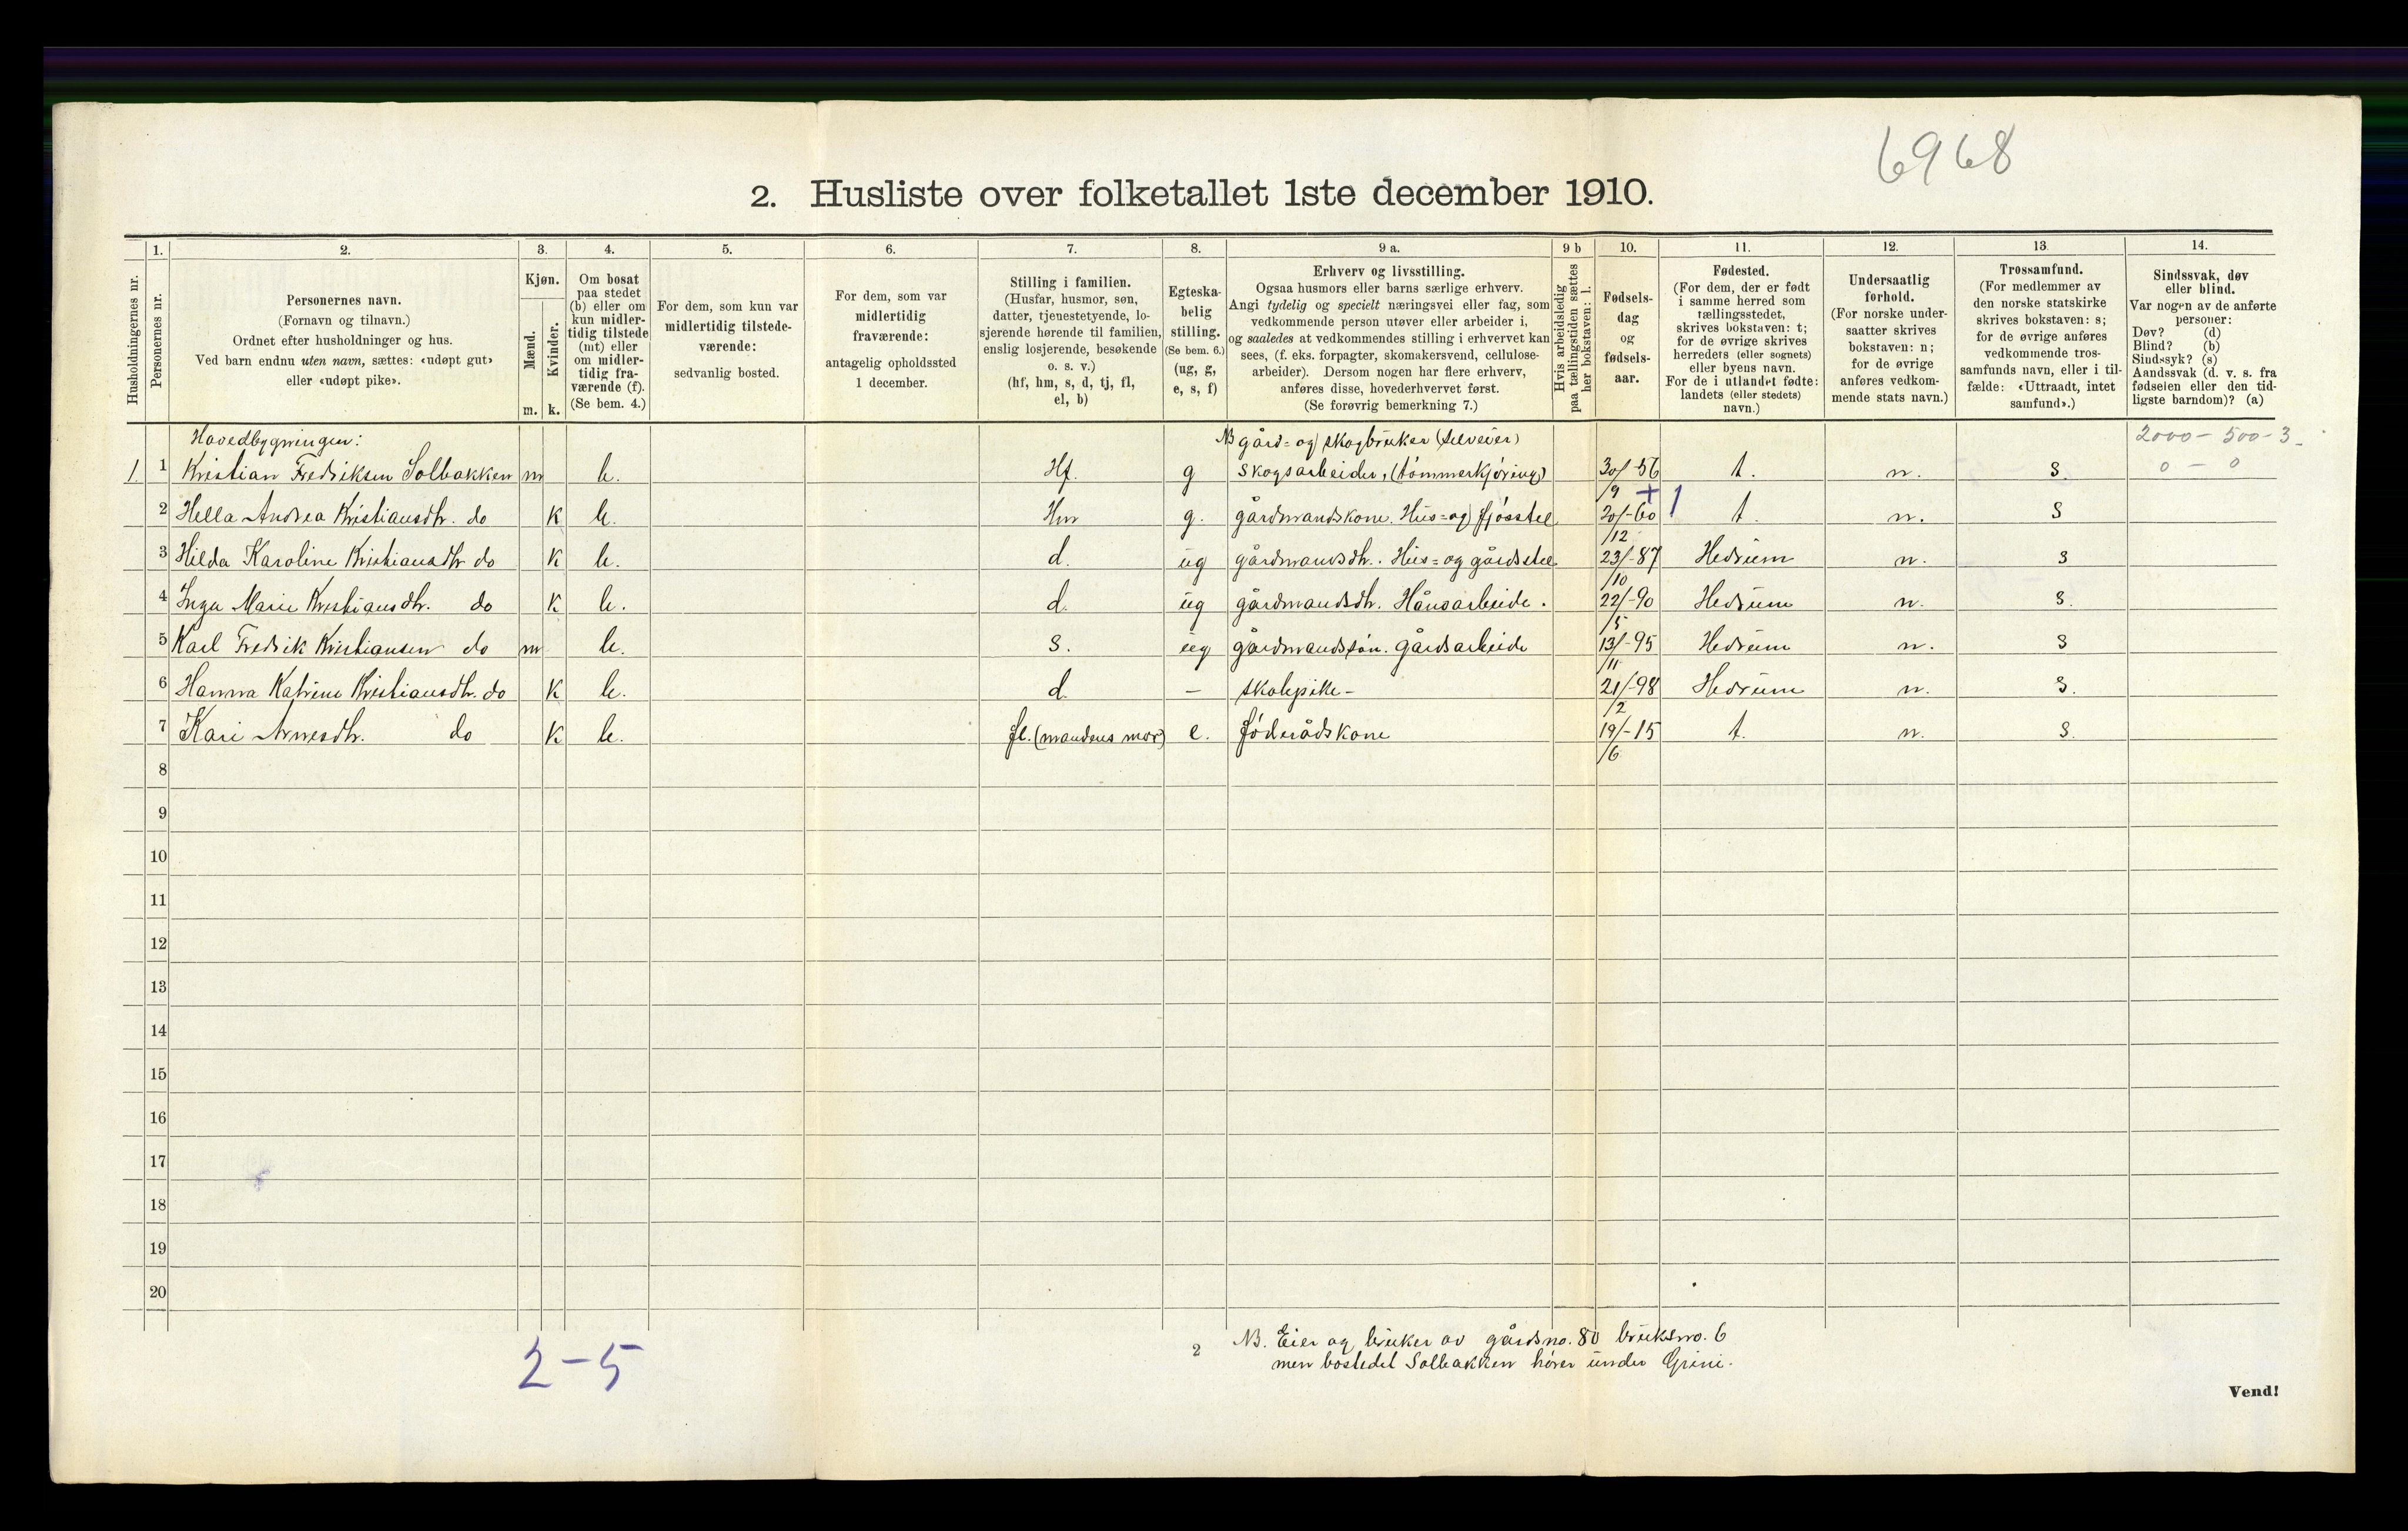 6968
2. Husliste over folketallet 1ste december 1910.
Husholdningernes nr.
1. Personernes nr.
2. Personernes navn.
(Fornavn og tilnavn.)
Ordnet efter husholdninger og hus.
Ved barn endnu uten navn, sættes: «udøpt gut»
eller «udøpt pike».
3. Kjøn.
Mænd. Kvinder.
m. k.
4. Om bosat
paa stedet
(b) eller om
kun midler-
tidig tilstede
(mt) eller
om midler-
tidig fra-
værende (f).
(Se bem. 4.)
5. For dem, som kun var
midlertidig tilstede-
værende:
sedvanlig bosted.
6. For dem, som var
midlertidig
fraværende:
antagelig opholdssted
1 december.
7. Stilling i familien.
(Husfar, husmor, søn,
datter, tjenestetyende, lo-
sjerende hørende til familien,
enslig losjerende, besøkende
o. s. v.)
(hf, hm, s, d, tj, fl,
el, b)
8. Egteska-
belig
stilling.
(Se bem. 6.)
(ug, g,
e, s, f)
9 a. Erhverv og livsstilling.
Ogsaa husmors eller barns særlige erhverv.
Angi tydelig og specielt næringsvei eller fag, som
vedkommende person utøver eller arbeider i,
og saaledes at vedkommendes stilling i erhvervet kan
sees, (f. eks. forpagter, skomakersvend, cellulose-
arbeider). Dersom nogen har flere erhverv,
anføres disse, hovederhvervet først.
(Se forøvrig bemerkning 7.)
9 b Hvis arbeidsledig
paa tællingstiden sættes
her bokstaven: l.
10. Fødsels-
dag
og
fødsels-
aar.
11. Fødested.
(For dem, der er født
i samme herred som
tællingsstedet,
skrives bokstaven: t;
for de øvrige skrives
herredets (eller sognets)
eller byens navn.
For de i utlandet fødte:
landets (eller stedets)
navn.)
12. Undersaatlig
forhold.
(For norske under-
saatter skrives
bokstaven: n;
for de øvrige
anføres vedkom-
mende stats navn.)
13. Trossamfund.
(For medlemmer av
den norske statskirke
skrives bokstaven: s;
for de øvrige anføres
vedkommende tros-
samfunds navn, eller i til-
fælde: «Uttraadt, intet
samfund».)
14. Sindssvak, døv
eller blind.
Var nogen av de anførte
personer:
Døv? (d)
Blind? (b)
Sindssyk? (s)
Aandssvak (d. v. s. fra
fødselen eller den tid-
ligste barndom)? (a)
Hovedbygningen: NB gård- og skogbruker (selveier) 2000 - 500 - 3
1. 1 Kristian Fredriksen Solbakken m b. Hf. g Skogsarbeider, (tømmerkjøring) 30/9-56 t. n. s. 0 - 0
2 Hella Andrea Kristiansdtr. do k b. Hm g. gårdmandskone. Hus- og fjösstel 20/12-60 + 1 t. n. s
3 Hilda Karoline Kristiansdtr do k b. d. ug gårdmandsdtr. Hus- og gårdsstel 23/10-87 Hedrum n. s
4 Inga Marie Kristiansdtr. do k b. d. ug gårdmandsdtr. Håndarbeide. 22/5-90 Hedrum n. s.
5 Karl Fredrik Kristiansen do m b. s. ug gårdmandssön. Gårdsarbeide 13/11-95 Hedrum n. s
6 Hanna Katrine Kristiansdtr. do k b. d. – skolepike – 21/2-98 Hedrum n. s.
7 Kari Arnesdtr. do k b. fl. (mandens mor) e. föderådskone 19/6-15 t. n. s.
8
9
10
11
12
13
14
15
16
17
18
19
20
2-5
2
NB. Eier og bruker av gårdsno. 80 bruksno. 6
men bostedet Solbakken hörer under Grini.
Vend!